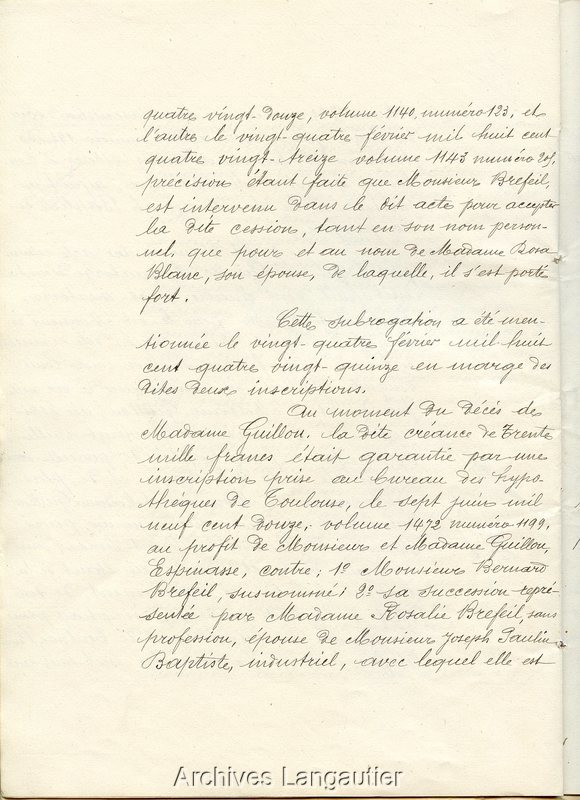 quatre vingt-douze, volume 1140, numéro 123, et
l'autre le vingt-quatre février mil huit cent
quatre vingt-treize volume 1143 numéro
précision étant faite que Monsieur Brefeil,
est intervenu dans le dit acte pour accepter
la dite cession, tant en son nom person-
nel, que pour et au nom de Madame Rosa
Blanc, son épouse, de laquelle, il s'est porté
fort.
Cette subrogation a été men-
tionnée le vingt-quatre février mil huit
cent quatre vingt-quinze en marge des
dites deux inscriptions.
Au moment du décès de
Madame Guillon, la dite créance de Trente
mille francs était garantie par une
inscription prise au bureau des hypo-
thèques de Toulouse, le sept juin mil
neuf cent douze, volume 1472 numéro 1199,
au profit de Monsieur et Madame Guillon,
Espinasse, contre; 1º Monsieur Bernard
Brefeil, susnommé; 2º sa succession repré-
sentée par Madame Rosalie Brefeil, sans
profession, épouse de Monsieur Joseph Paulin
Baptiste, industriel, avec lequel elle est
Archives Langautier